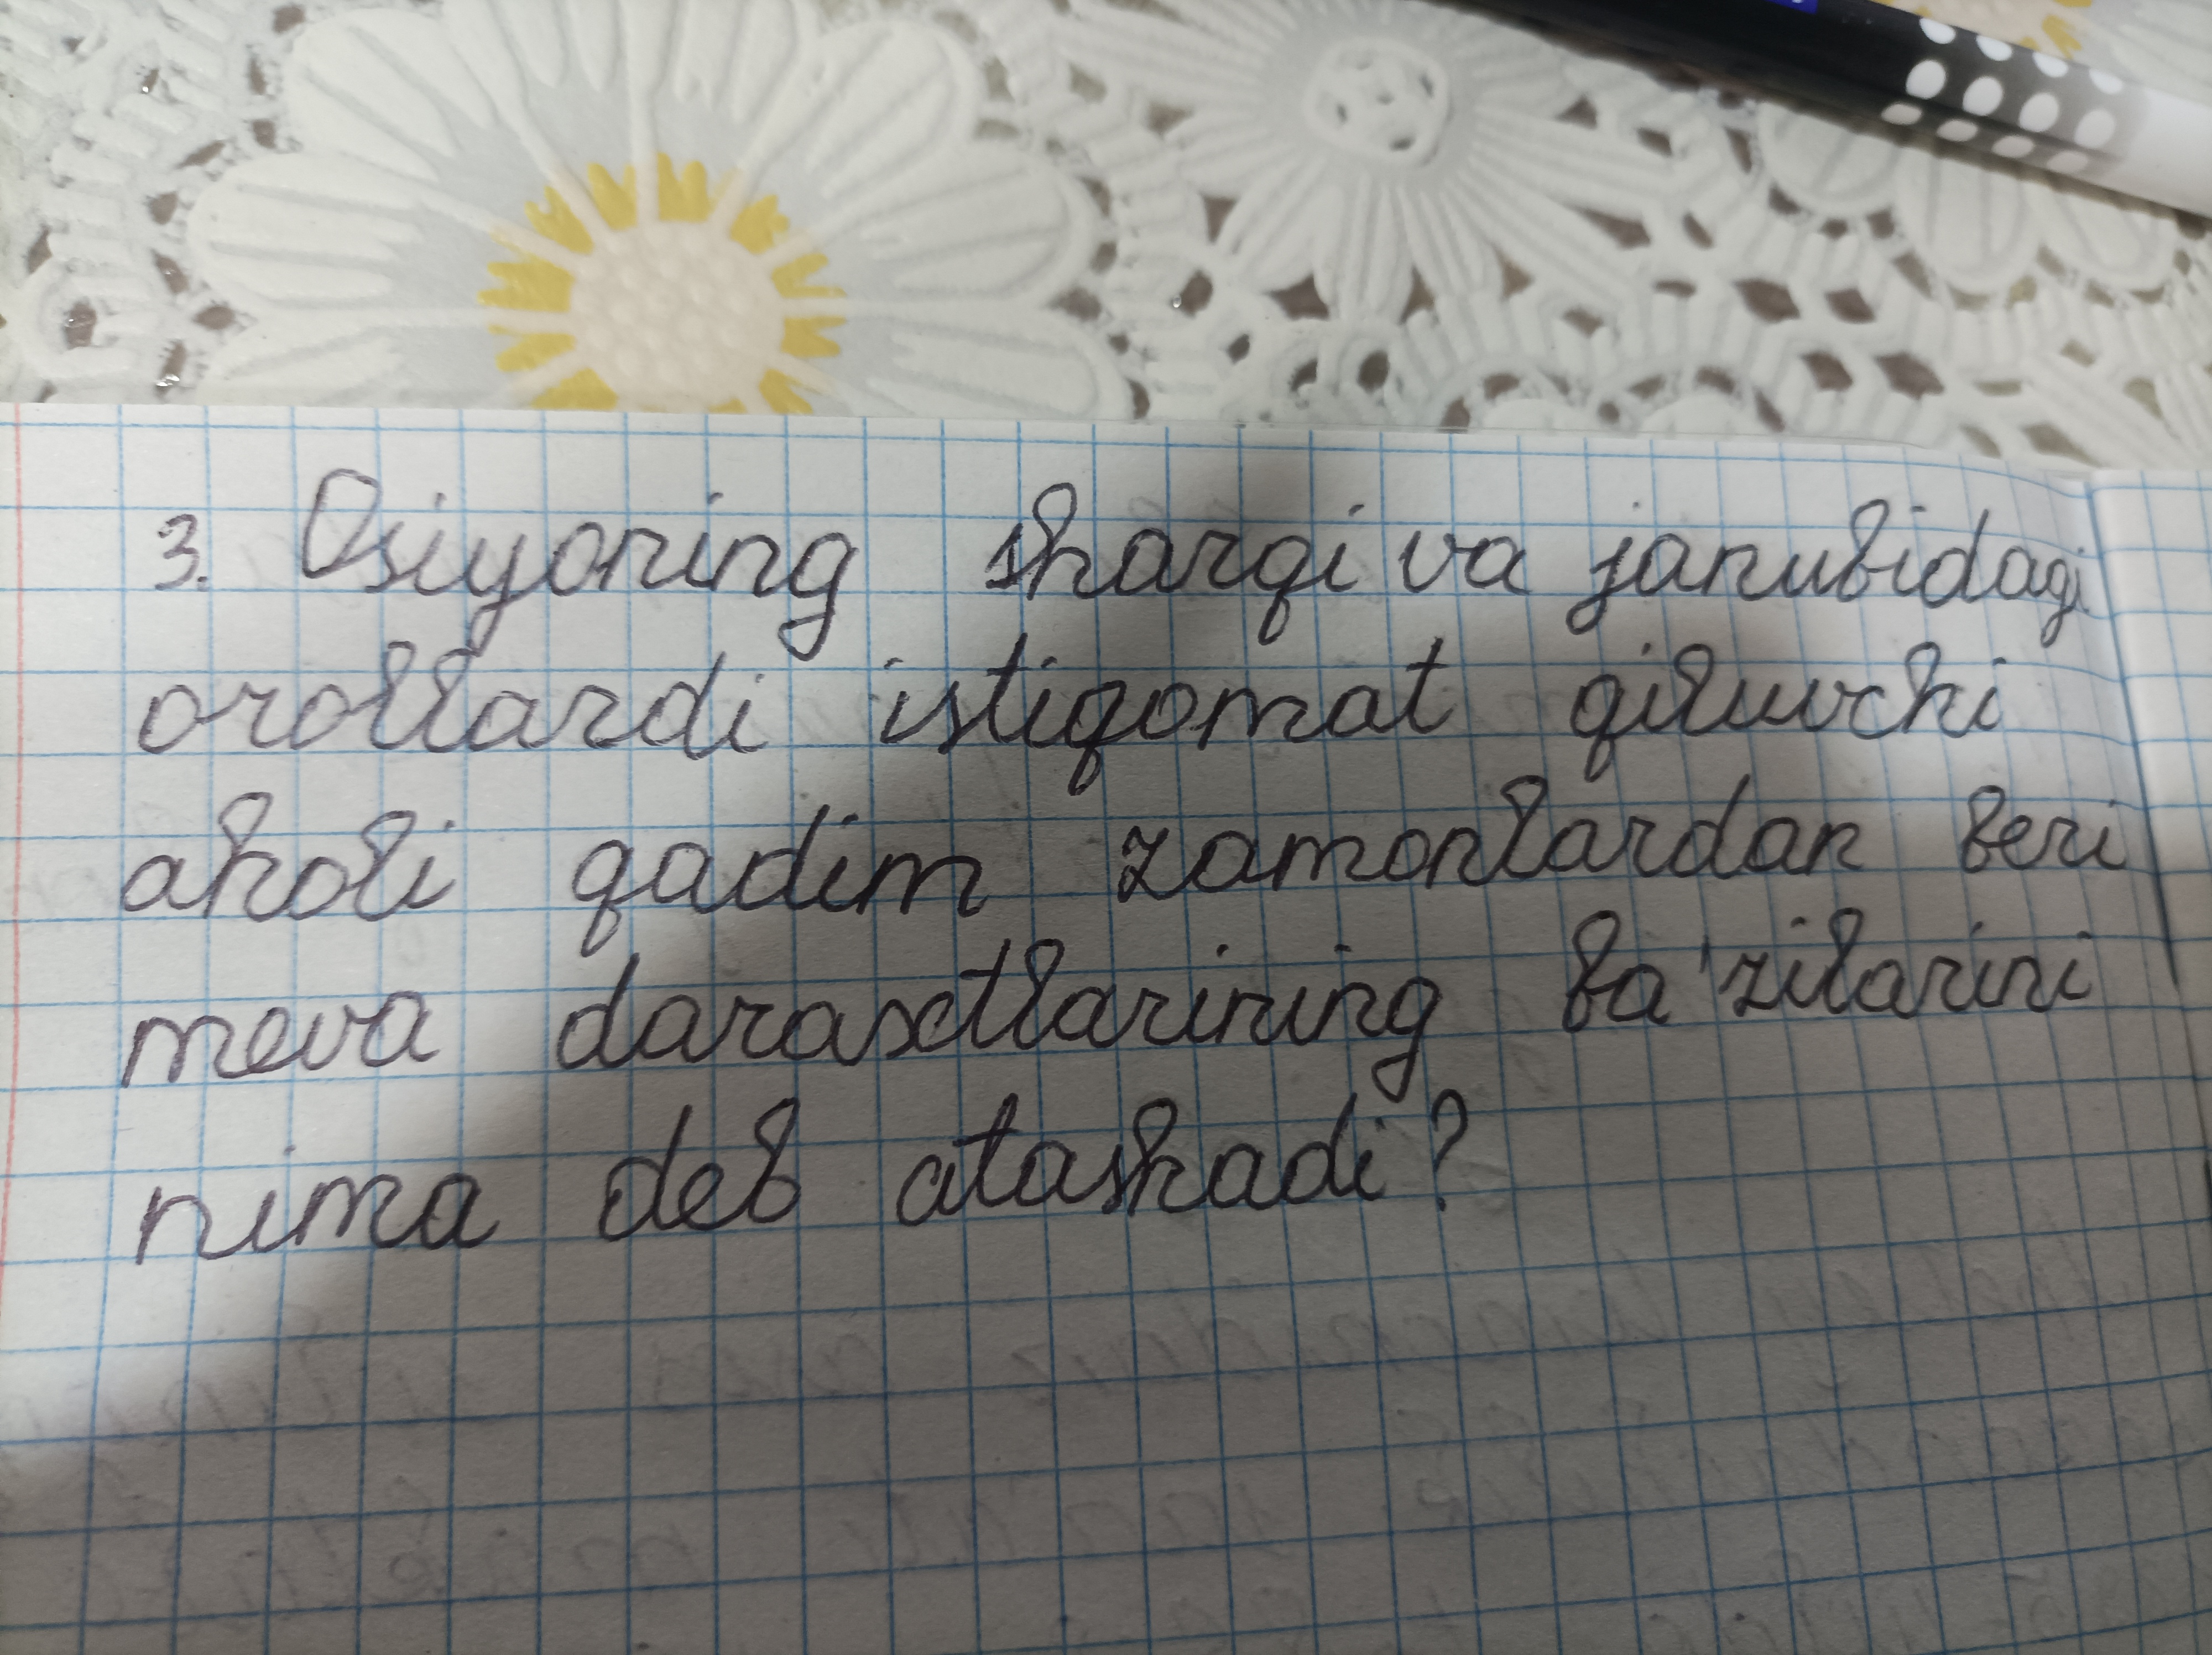 3. Osiyoning sharqi va janubidagi
orollardi istiqomat qiluvchi
aholi qadim zamonlardan beri
meva daraxtlarining ba'zilarini
nima deb atashadi?